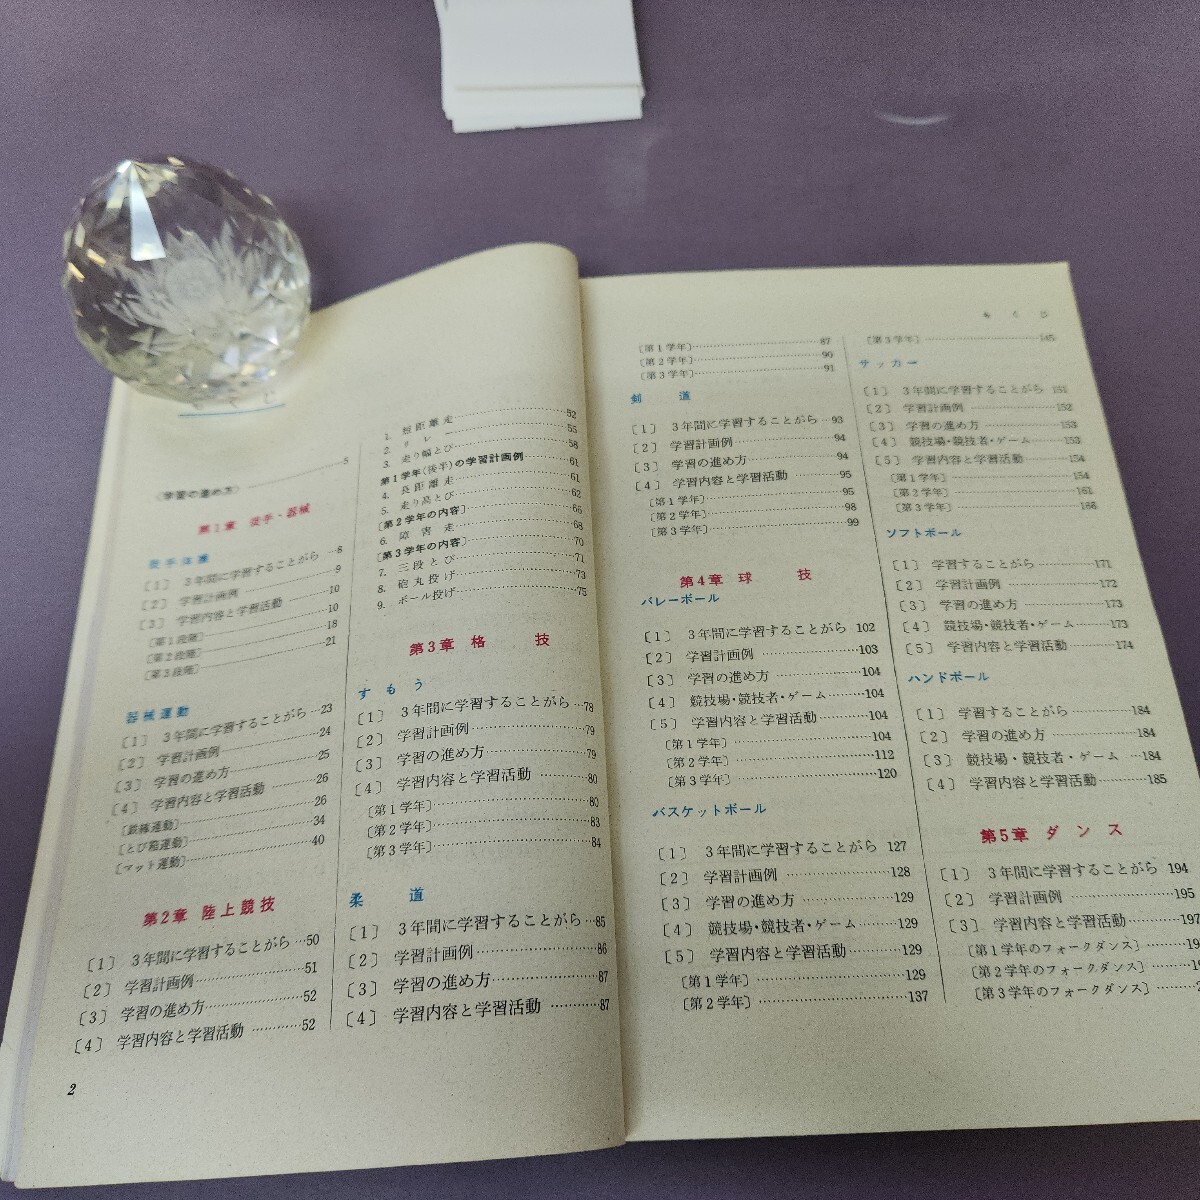 もくじ
〈学習の進め方〉 5
第1章 徒手・器械
徒手体操
〔1〕 3年間に学習することがら 8
〔2〕 学習計画例 9
〔3〕 学習内容と学習活動 10
〔第1段階〕 10
〔第2段階〕 18
〔第3段階〕 21
器械運動
〔1〕 3年間に学習することがら 23
〔2〕 学習計画例 24
〔3〕 学習の進め方 25
〔4〕 学習内容と学習活動 26
〔鉄棒運動〕 26
〔とび箱運動〕 34
〔マット運動〕 40
第2章 陸上競技
〔1〕 3年間に学習することがら 50
〔2〕 学習計画例 51
〔3〕 学習の進め方 52
〔4〕 学習内容と学習活動 52
2
1. 短距離走 52
2. リレー 55
3. 走り幅とび 58
第1学年(後半)の学習計画例 61
4. 長距離走 61
5. 走り高とび 62
〔第2学年の内容〕 66
6. 障害走 68
〔第3学年の内容〕 70
7. 三段とび 71
8. 砲丸投げ 73
9. ボール投げ 75
第3章 格技
すもう
〔1〕 3年間に学習することがら 78
〔2〕 学習計画例 79
〔3〕 学習の進め方 79
〔4〕 学習内容と学習活動 80
〔第1学年〕 80
〔第2学年〕 83
〔第3学年〕 84
柔道
〔1〕 3年間に学習することがら 85
〔2〕 学習計画例 86
〔3〕 学習の進め方 87
〔4〕 学習内容と学習活動 87
もくじ
〔第1学年〕 87
〔第2学年〕 90
〔第3学年〕 91
剣道
〔1〕 3年間に学習することがら 93
〔2〕 学習計画例 94
〔3〕 学習の進め方 94
〔4〕 学習内容と学習活動 95
〔第1学年〕 95
〔第2学年〕 98
〔第3学年〕 99
第4章 球技
バレーボール
〔1〕 3年間に学習することがら 102
〔2〕 学習計画例 103
〔3〕 学習の進め方 104
〔4〕 競技場・競技者・ゲーム 104
〔5〕 学習内容と学習活動 104
〔第1学年〕 104
〔第2学年〕 112
〔第3学年〕 120
バスケットボール
〔1〕 3年間に学習することがら 127
〔2〕 学習計画例 128
〔3〕 学習の進め方 129
〔4〕 競技場・競技者・ゲーム 129
〔5〕 学習内容と学習活動 129
〔第1学年〕 129
〔第2学年〕 137
〔第3学年〕 145
サッカー
〔1〕 3年間に学習することがら 151
〔2〕 学習計画例 152
〔3〕 学習の進め方 153
〔4〕 競技場・競技者・ゲーム 153
〔5〕 学習内容と学習活動 154
〔第1学年〕 154
〔第2学年〕 161
〔第3学年〕
ソフトボール
〔1〕 学習することがら 171
〔2〕 学習計画例 172
〔3〕 学習の進め方 173
〔4〕 競技場・競技者・ゲーム 173
〔5〕 学習内容と学習活動 174
ハンドボール
〔1〕 学習することがら 184
〔2〕 学習の進め方 184
〔3〕 競技場・競技者・ゲーム 184
〔4〕 学習内容と学習活動 185
第5章 ダンス
〔1〕 3年間に学習することがら 194
〔2〕 学習計画例 195
〔3〕 学習内容と学習活動 197
〔第1学年のフォークダンス〕
〔第2学年のフォークダンス〕
〔第3学年のフォークダンス〕